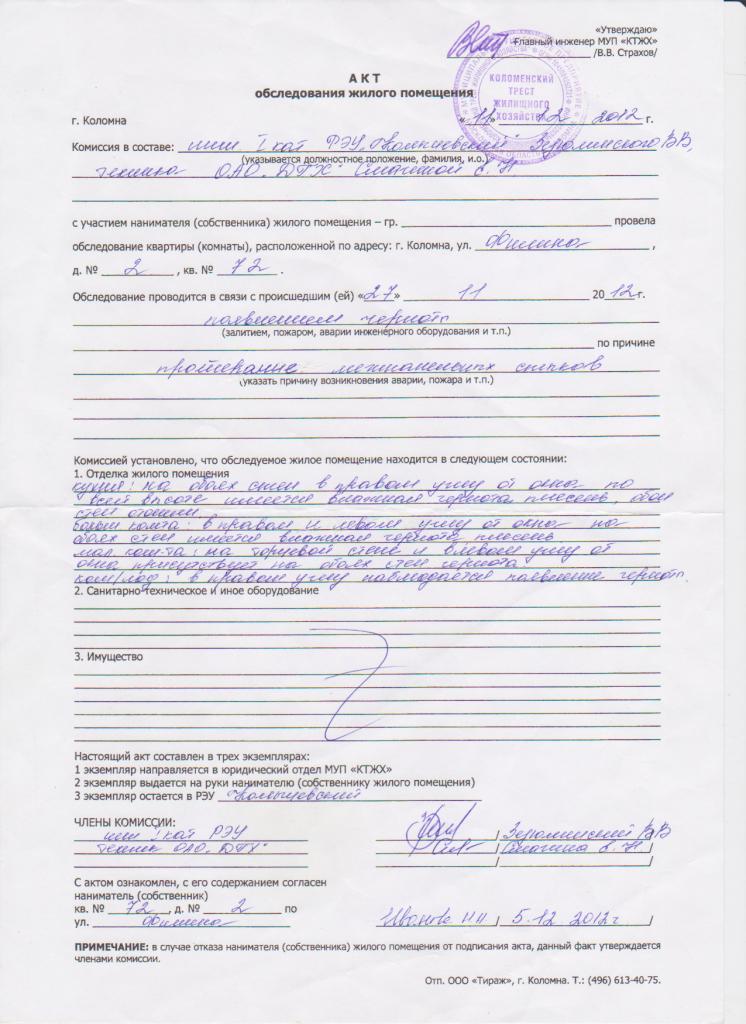 «Утверждаю»
Главный инженер МУП «КТЖХ»
/В.В. Страхов/
КОЛОМЕНСКИЙ
ТРЕСТ
ЖИЛИЩНОГО
ХОЗЯЙСТВА
АКТ
обследования жилого помещения
г. Коломна «11» 12 2012 г.
Комиссия в составе: инж I кат РЭУ „Колычевский"
(указывается должностное положение, фамилия, и.о.)
техника ОАО „ДГХ" Смагиной
с участием нанимателя (собственника) жилого помещения – гр. провела
обследование квартиры (комнаты), расположенной по адресу: г. Коломна, ул. Филина ,
д. № 2 , кв. № 72 .
Обследование проводится в связи с происшедшим (ей) «27» 11 2012г.
появлением черноты
(залитием, пожаром, аварии инженерного оборудования и т.п.)
по причине
протекание межпанельных стыков
(указать причину возникновения аварии, пожара и т.п.)
Комиссией установлено, что обследуемое жилое помещение находится в следующем состоянии:
1. Отделка жилого помещения
кухня: на обоях стен в правом углу от окна по
всей высоте имеется влажная чернота плесень, обои
стен отошли.
больш комната: в правом и левом углу от окна на
обоях стен имеется влажная чернота плесень
мал. ком-та: на торцевой стене и в левом углу от
окна присутствует на обоях стен чернота
ком/лодж: в правом углу наблюдается появление черноты.
2. Санитарно-техническое и иное оборудование
3. Имущество
Настоящий акт составлен в трех экземплярах:
1 экземпляр направляется в юридический отдел МУП «КТЖХ»
2 экземпляр выдается на руки нанимателю (собственнику жилого помещения)
3 экземпляр остается в РЭУ Колычевский
ЧЛЕНЫ КОМИССИИ:
инж I кат РЭУ / В В
техник ОАО „ДГХ" / Смагина /
/ /
С актом ознакомлен, с его содержанием согласен
наниматель (собственник)
кв. № 72 , д. № 2 по
ул. Филина Иванова НН / 5.12.2012г /
ПРИМЕЧАНИЕ: в случае отказа нанимателя (собственника) жилого помещения от подписания акта, данный факт утверждается
членами комиссии.
Отп. ООО «Тираж», г. Коломна. Т.: (496) 613-40-75.